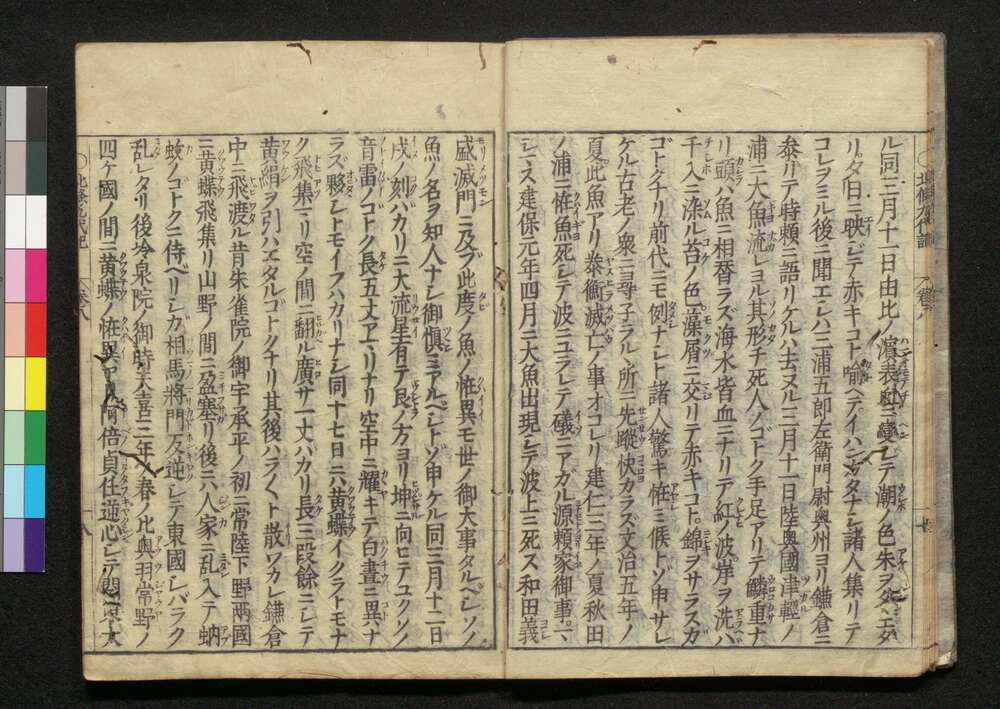 ル同三月十一日由比ノ濱表血ニ變シテ潮ノ色朱ヲタヽエタ
リ夕日ニ映シテ赤キコト喩ヘテイハンカタナシ諸人集リテ
コレヲミル後ニ聞エシハ三浦五郎左衛門尉奥州ヨリ鎌倉ニ
参リテ時頼ニ語リケルハ去ヌル三月十一日陸奥國津輕ノ
浦ニ大魚流レヨル其形チ死人ノゴトク手足アリテ鱗重ナ
リ頭ハ魚ニ相替ラズ海水皆血ニナリテ紅ノ波岸ヲ洗ハ
千入ニ染ル苔ノ色藻屑ニ交リテ赤キコト錦ヲサラスカ
ゴトクナリ前代ニモ例ナシト諸人驚キ恠ミ候トゾ申サレ
ケル古老ノ衆ニ尋子ラルヽ所ニ先蹤快カラズ文治五年ノ
夏此魚アリ泰衡滅亡ノ事オコレリ建仁三年ノ夏秋田
ノ浦ニ恠魚死シテ波ニユラレテ礒ニアガル源頼家御事ニ
シス建保元年四月ニ大魚出現シテ波上ニ死ス和田義
盛滅門ニ及ブ此度ノ魚ノ恠異モ世ノ御大事タルベシソノ
魚ノ名ヲ知人ナシ御愼ミアルベシトゾ申ケル同三月十二日
戌ノ刻バカリニ大流星有テ艮ノ方ヨリ坤ニ向ヒテユクソノ
音雷ノゴトク長五丈アマリナリ空中ニ耀キテ白晝ニ異ナ
ラズ夥シトモイフハカリナシ同十七日ニ六黄蝶イクラトモナ
ク飛集リ空ノ間ニ翻ル廣サ一丈ハカリ長三段餘ニシテ
黄絹ヲ引ハエタルゴトクナリ其後ハラ〱ト散ワカレ鎌倉
中ニ飛渡ル昔朱雀院ノ御宇承平ノ初ニ常陸下野兩國
ニ黄蝶飛集リ山野ノ間ニ盈塞リ後ニハ人家ニ乱入テ蚋
蚊ノゴトクニ侍ベリシカ相馬將門反逆シテ東國シバラク
乱レタリ後冷泉院ノ御時天喜二年ノ春ノ比奥羽常野ノ
四ケ國ノ間ニ黄蝶ノ恠異アリ阿倍貞任逆心シテ